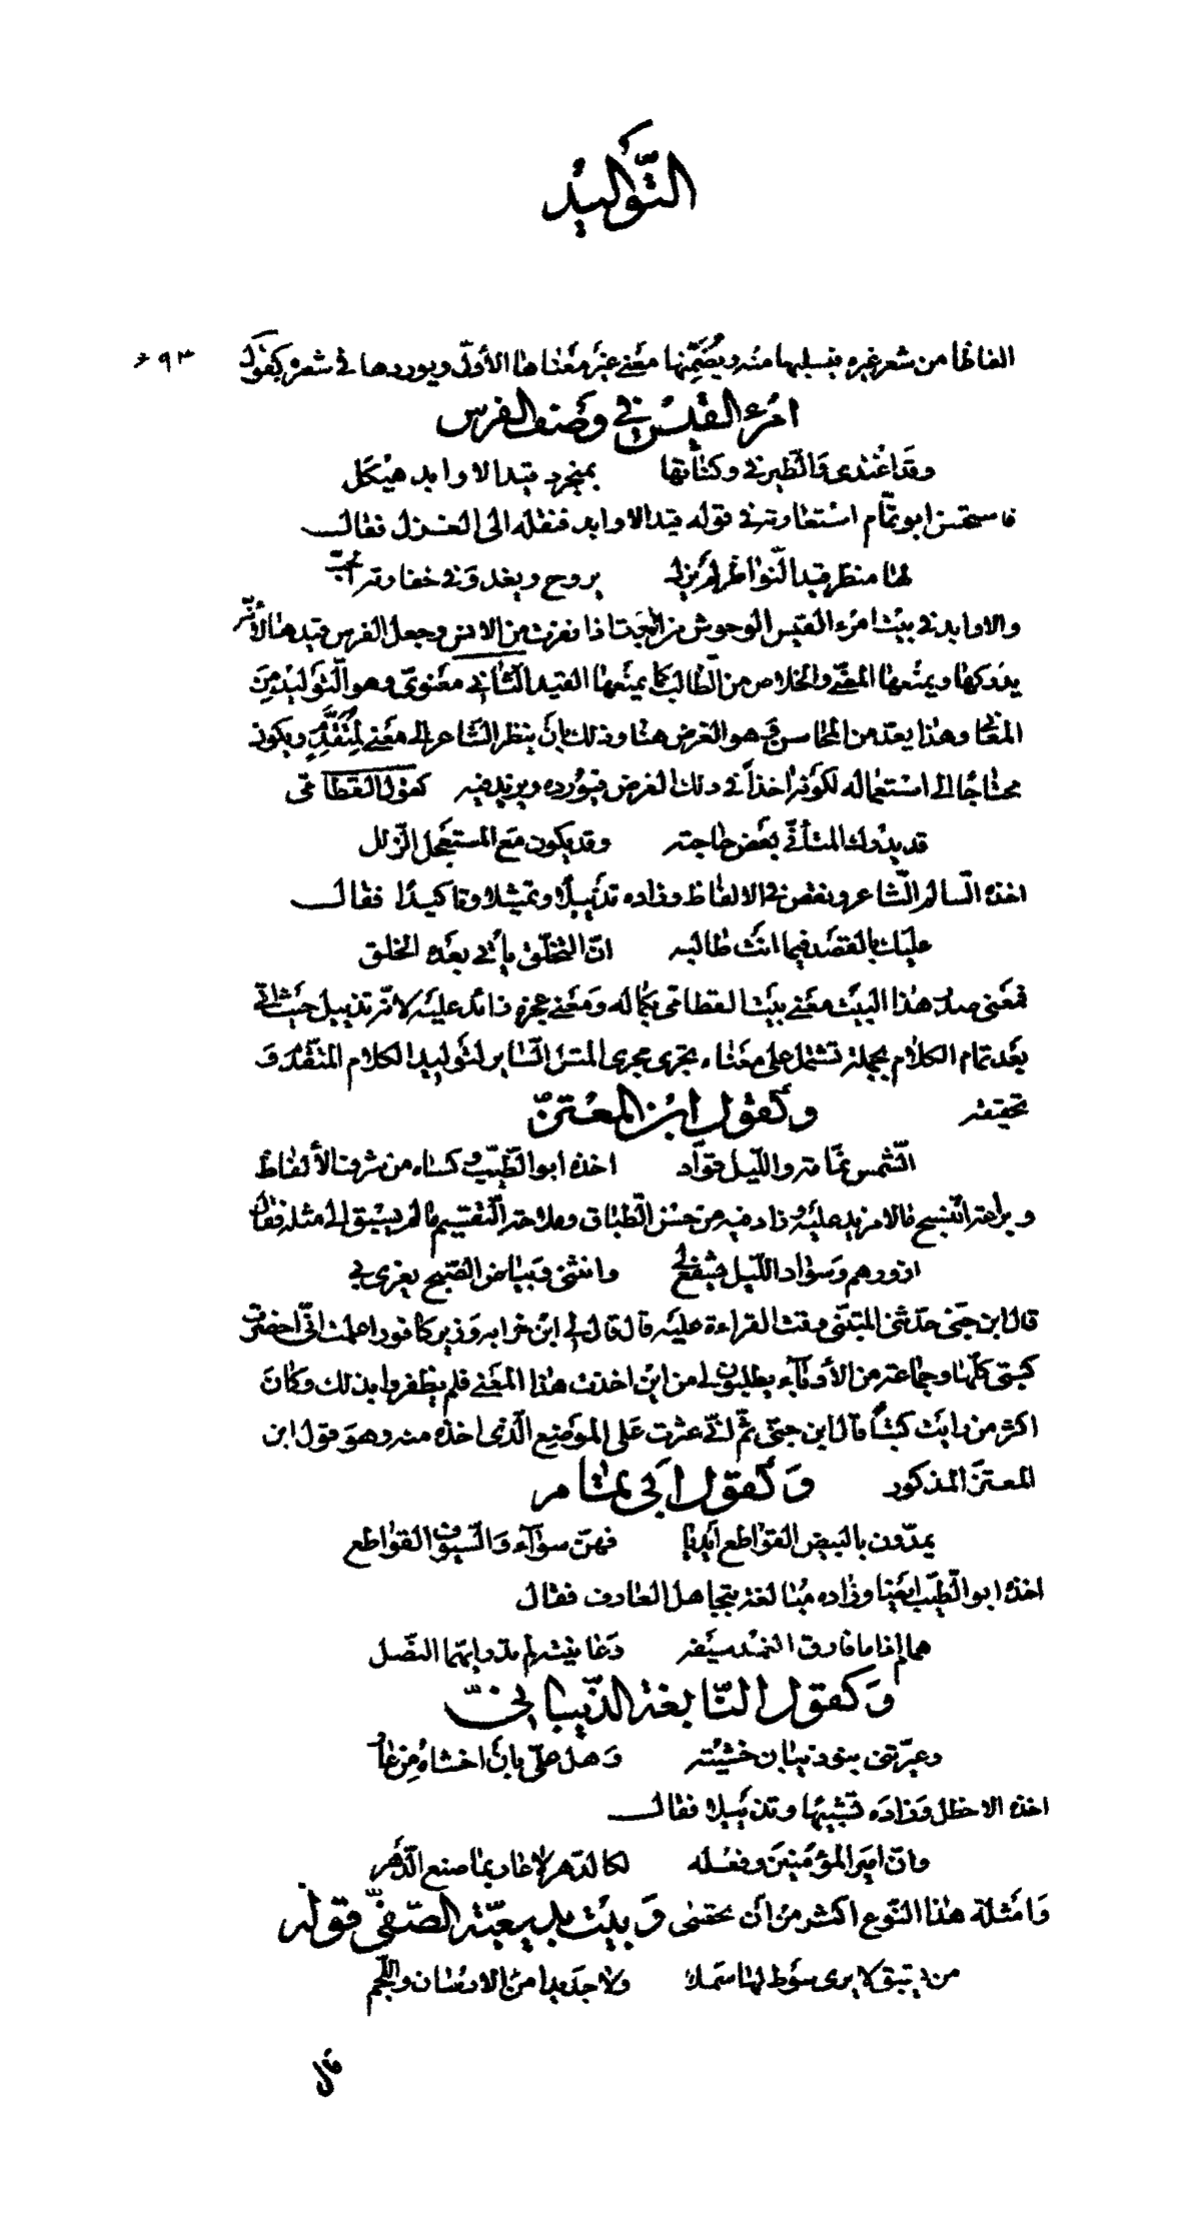 التَّوَلِيدُ
الفاظا من شعر غيره فيسلبها منه ويُضَمِّنها معنى غير معناها الأوّل ويوردها في شعره كقول
امرء القيس في وصف الفرس
وقد اغتدى والطير في وكناتها بمنجرد قيد الاوابد هيكل
فاستحسن ابو تمّام استعارته في قوله قيد الاوابد فنقله الى الغزل فقال
لها منظر قيد النّواظر لم يزل يروح ويغدو في خفارته الحبّ
والاوابد في بيت امرء القيس الوحوش من البحت اذا نفرت من الانس وجعل الفرس قيدها لأنّه
يدركها ويمنعها المضيّ والخلاص من الطّالب كما يمنعها القيد الثّاني معنوىّ وهو التّوليد من
المعنى وهذا يعد من المحاسن وهو الغرض هنا وذلك بان ينظر الشّاعر الى معنى لمتقدّم ويكون
محتاجًا الى استعماله لكونه اخذاً في ذلك الغرض فيورده ويزيد فيه كقول القطامىّ
قد يدرك المتأنّي بعض حاجته وقد يكون مع المستعجل الزّلل
اخذه السّالم الشّاعر ونقص في الالفاظ وزاده تذييلًا وتمثيلا وتاكيدًا فقال
عليك بالقصد فيما انت طالبه انّ التخلّق يأتي بعده الخلق
فمعنى صدر هذا البيت معنى بيت القطامىّ بكماله ومعنى عجزه زائد عليه لانّه تذييل حيث اتى
بعد تمام الكلام بجملة تشتمل على معناه تجرى مجرى المثل السّاير لتوليد الكلام المتقدّم و
تحقيقه وكقول ابن المعتزّ
الشّمس نمّامة والليل قوّاد اخذه ابو الطّيّب وكساه من شرف الألفاظ
وبراعة النسج ما لا مزيد عليه وزاد فيه من حسن الطّباق وملاحة التّقسيم ما لم يسبق الى مثله فقال
ازورهم وسواد اللّيل يشفع لي وانثنى وبياض الصّبح يغرى بي
قال ابن جنّى حدّثنى المتنبّى وقت القراءة عليه قال قال لي ابن خرابه وزير كافور اعلمت انّى احضرت
كتبى كلّها وجماعة من الأدباء يطلبون لي من اين اخذت هذا المعنى فلم يظفروا بذلك وكان
اكثر من رايت كتبًا قال ابن جنّى ثمّ انّي عثرت على الموضع الّذى اخذه منه وهو قول ابن
المعتزّ المذكور وكقول ابي تمّام
يمدّون بالبيض القواطع ايديًا فهنّ سواء والسّيوف القواطع
اخذه ابو الطّيّب ايضا وزاده مبالغة بتجاهل العارف فقال
همام اذا ما فارق الغمد سيفه وعاينته لم تدر ايّهما النّصل
وكقول النّابغة الذّبيانيّ
وعيّرتنى بنو ذبيان خشيته وهل علىّ بان اخشاه من عار
اخذه الاخطل وزاده تشبيها وتذييلا فقال
وانّ امير المؤمنين وفعله لكالدّهر لا عار بما صنع الدّهر
وامثلة هذا النّوع اكثر من ان تحصى وبيت بديعيّة الصّفيّ قوله
من سبّق لا يرى سوط لها سملا ولا جديدا من الارسان واللّجم
قال